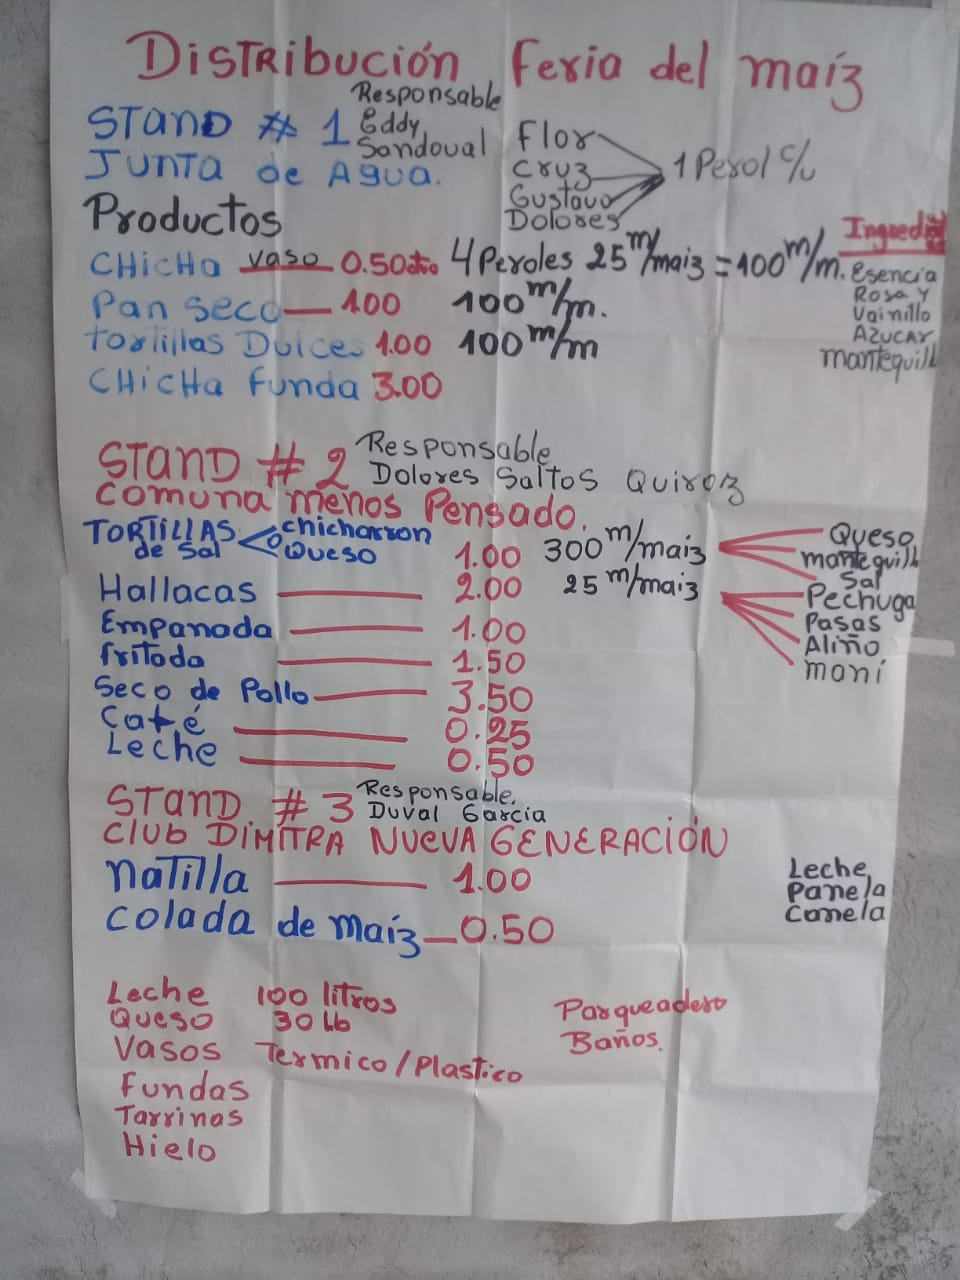 Distribución Feria del maíz
STAND # 1 Responsable Eddy Sandoval
Junta de Agua.
Flor
Cruz
Gustavo
Dolores
1 Perol c/u
Productos
CHicHa vaso 0.50 4 Peroles 25 m/maiz = 100 m/m.
Pan seco — 1.00 100 m/m.
Tortillas Dulces 1.00 100 m/m
CHicHa Funda 3.00
Esencia
Rosa y
Vainillo
Azucar
mantequill
STAND # 2 Responsable
Dolores Saltos Quiroz
Comuna menos Pensado.
TORTILLAS de Sal chicharron o Queso 1.00 300 m/maiz
Queso
mantequill
Sal
Hallacas 2.00 25 m/maiz
Pechuga
Pasas
Aliño
maní
Empanada 1.00
Fritada 1.50
Seco de Pollo 3.50
Café 0.25
Leche 0.50
STAND # 3 Responsable.
Duval Garcia
Club DIMITRA NUEVA GENERACIÓN
Natilla 1.00
Colada de maíz — 0.50
Leche
Panela
Canela
Leche 100 litros
Queso 30 lb
Vasos Termico/Plastico
Fundas
Tarrinas
Hielo
Parqueadero
Baños.